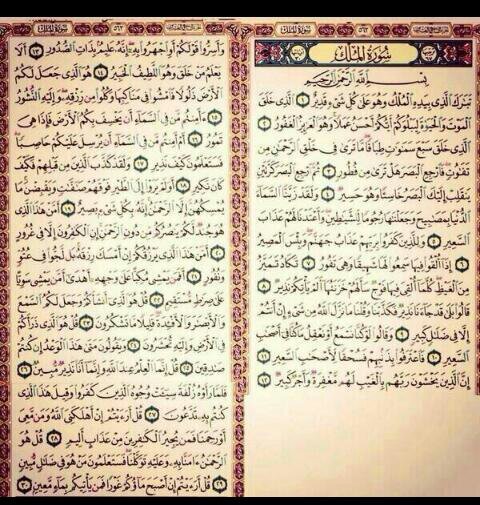 سُورَةُ المُلْكِ
سُورَةُ المُلْكِ
بِسْمِ اللَّهِ الرَّحْمَٰنِ الرَّحِيمِ
تَبَٰرَكَ الَّذِي بِيَدِهِ الْمُلْكُ وَهُوَ عَلَىٰ كُلِّ شَيْءٍ قَدِيرٌ ١ الَّذِي خَلَقَ
الْمَوْتَ وَالْحَيَوٰةَ لِيَبْلُوَكُمْ أَيُّكُمْ أَحْسَنُ عَمَلًا وَهُوَ الْعَزِيزُ الْغَفُورُ ٢
الَّذِي خَلَقَ سَبْعَ سَمَٰوَٰتٍ طِبَاقًا مَّا تَرَىٰ فِي خَلْقِ الرَّحْمَٰنِ مِن
تَفَٰوُتٍ فَارْجِعِ الْبَصَرَ هَلْ تَرَىٰ مِن فُطُورٍ ٣ ثُمَّ ارْجِعِ الْبَصَرَ كَرَّتَيْنِ
يَنقَلِبْ إِلَيْكَ الْبَصَرُ خَاسِئًا وَهُوَ حَسِيرٌ ٤ وَلَقَدْ زَيَّنَّا السَّمَاءَ
الدُّنْيَا بِمَصَٰبِيحَ وَجَعَلْنَٰهَا رُجُومًا لِّلشَّيَٰطِينِ وَأَعْتَدْنَا لَهُمْ عَذَابَ
السَّعِيرِ ٥ وَلِلَّذِينَ كَفَرُوا بِرَبِّهِمْ عَذَابُ جَهَنَّمَ وَبِئْسَ الْمَصِيرُ
٦ إِذَا أُلْقُوا فِيهَا سَمِعُوا لَهَا شَهِيقًا وَهِيَ تَفُورُ ٧ تَكَادُ تَمَيَّزُ
مِنَ الْغَيْظِ كُلَّمَا أُلْقِيَ فِيهَا فَوْجٌ سَأَلَهُمْ خَزَنَتُهَا أَلَمْ يَأْتِكُمْ نَذِيرٌ ٨
قَالُوا بَلَىٰ قَدْ جَاءَنَا نَذِيرٌ فَكَذَّبْنَا وَقُلْنَا مَا نَزَّلَ اللَّهُ مِن شَيْءٍ إِنْ أَنتُمْ
إِلَّا فِي ضَلَٰلٍ كَبِيرٍ ٩ وَقَالُوا لَوْ كُنَّا نَسْمَعُ أَوْ نَعْقِلُ مَا كُنَّا فِي أَصْحَٰبِ
السَّعِيرِ ١٠ فَاعْتَرَفُوا بِذَنبِهِمْ فَسُحْقًا لِّأَصْحَٰبِ السَّعِيرِ ١١
إِنَّ الَّذِينَ يَخْشَوْنَ رَبَّهُم بِالْغَيْبِ لَهُم مَّغْفِرَةٌ وَأَجْرٌ كَبِيرٌ ١٢
سُورَةُ المُلْكِ
وَأَسِرُّوا قَوْلَكُمْ أَوِ اجْهَرُوا بِهِ إِنَّهُ عَلِيمٌ بِذَاتِ الصُّدُورِ ١٣ أَلَا
يَعْلَمُ مَنْ خَلَقَ وَهُوَ اللَّطِيفُ الْخَبِيرُ ١٤ هُوَ الَّذِي جَعَلَ لَكُمُ
الْأَرْضَ ذَلُولًا فَامْشُوا فِي مَنَاكِبِهَا وَكُلُوا مِن رِّزْقِهِ وَإِلَيْهِ النُّشُورُ
١٥ ءَأَمِنتُم مَّن فِي السَّمَاءِ أَن يَخْسِفَ بِكُمُ الْأَرْضَ فَإِذَا هِيَ
تَمُورُ ١٦ أَمْ أَمِنتُم مَّن فِي السَّمَاءِ أَن يُرْسِلَ عَلَيْكُمْ حَاصِبًا
فَسَتَعْلَمُونَ كَيْفَ نَذِيرِ ١٧ وَلَقَدْ كَذَّبَ الَّذِينَ مِن قَبْلِهِمْ فَكَيْفَ
كَانَ نَكِيرِ ١٨ أَوَلَمْ يَرَوْا إِلَى الطَّيْرِ فَوْقَهُمْ صَٰفَّٰتٍ وَيَقْبِضْنَ مَا
يُمْسِكُهُنَّ إِلَّا الرَّحْمَٰنُ إِنَّهُ بِكُلِّ شَيْءٍ بَصِيرٌ ١٩ أَمَّنْ هَٰذَا الَّذِي
هُوَ جُندٌ لَّكُمْ يَنصُرُكُم مِّن دُونِ الرَّحْمَٰنِ إِنِ الْكَٰفِرُونَ إِلَّا فِي غُرُورٍ
٢٠ أَمَّنْ هَٰذَا الَّذِي يَرْزُقُكُمْ إِنْ أَمْسَكَ رِزْقَهُ بَل لَّجُّوا فِي عُتُوٍّ
وَنُفُورٍ ٢١ أَفَمَن يَمْشِي مُكِبًّا عَلَىٰ وَجْهِهِ أَهْدَىٰ أَمَّن يَمْشِي سَوِيًّا
عَلَىٰ صِرَٰطٍ مُّسْتَقِيمٍ ٢٢ قُلْ هُوَ الَّذِي أَنشَأَكُمْ وَجَعَلَ لَكُمُ السَّمْعَ
وَالْأَبْصَٰرَ وَالْأَفْئِدَةَ قَلِيلًا مَّا تَشْكُرُونَ ٢٣ قُلْ هُوَ الَّذِي ذَرَأَكُمْ
فِي الْأَرْضِ وَإِلَيْهِ تُحْشَرُونَ ٢٤ وَيَقُولُونَ مَتَىٰ هَٰذَا الْوَعْدُ إِن كُنتُمْ
صَٰدِقِينَ ٢٥ قُلْ إِنَّمَا الْعِلْمُ عِندَ اللَّهِ وَإِنَّمَا أَنَا نَذِيرٌ مُّبِينٌ ٢٦
فَلَمَّا رَأَوْهُ زُلْفَةً سِيئَتْ وُجُوهُ الَّذِينَ كَفَرُوا وَقِيلَ هَٰذَا الَّذِي
كُنتُم بِهِ تَدَّعُونَ ٢٧ قُلْ أَرَءَيْتُمْ إِنْ أَهْلَكَنِيَ اللَّهُ وَمَن مَّعِيَ
أَوْ رَحِمَنَا فَمَن يُجِيرُ الْكَٰفِرِينَ مِنْ عَذَابٍ أَلِيمٍ ٢٨ قُلْ هُوَ
الرَّحْمَٰنُ ءَامَنَّا بِهِ وَعَلَيْهِ تَوَكَّلْنَا فَسَتَعْلَمُونَ مَنْ هُوَ فِي ضَلَٰلٍ مُّبِينٍ
٢٩ قُلْ أَرَءَيْتُمْ إِنْ أَصْبَحَ مَاؤُكُمْ غَوْرًا فَمَن يَأْتِيكُم بِمَاءٍ مَّعِينٍ ٣٠